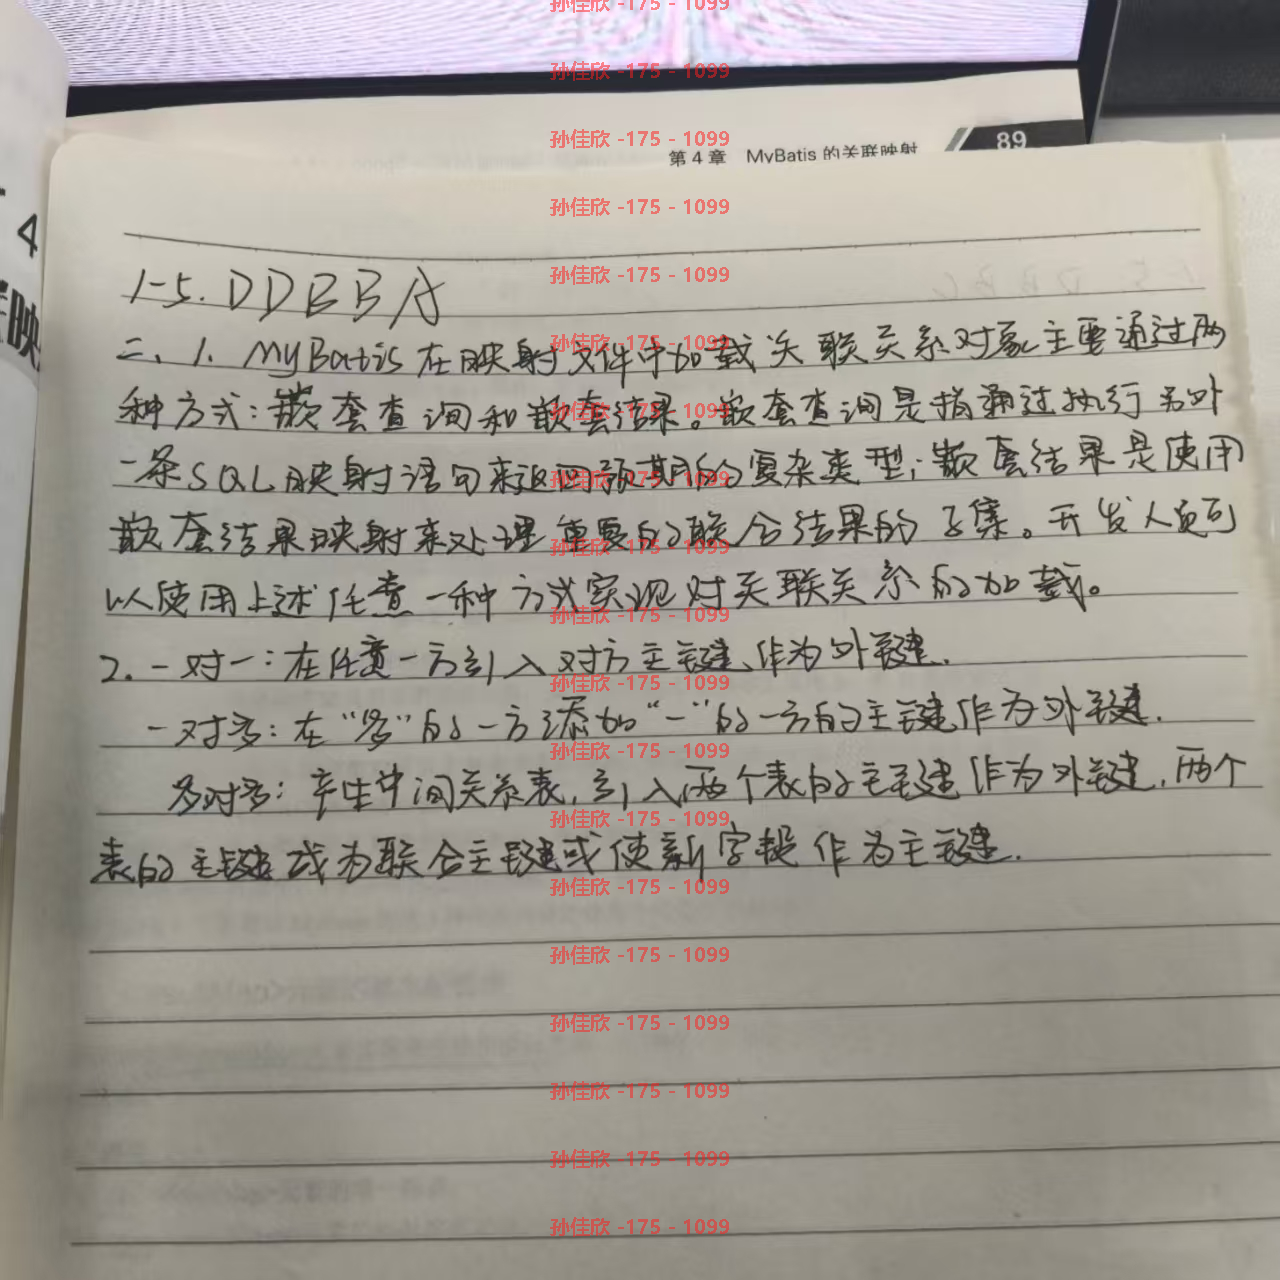 孙佳欣 -175 - 1099
孙佳欣 -175 - 1099
孙佳欣 -175 - 1099
89
第 4 章 MyBatis 的关联映射
孙佳欣 -175 - 1099
4
映
孙佳欣 -175 - 1099
1-5. D D B B A
孙佳欣 -175 - 1099
二、1. MyBatis 在映射文件中加载关联关系对象主要通过两
孙佳欣 -175 - 1099
种方式:嵌套查询和嵌套结果。嵌套查询是指通过执行另外
孙佳欣 -175 - 1099
一条SQL映射语句来返回预期的复杂类型;嵌套结果是使用
孙佳欣 -175 - 1099
嵌套结果映射来处理重复的联合结果的子集。开发人员可
以使用上述任意一种方式实现对关联关系的加载。
孙佳欣 -175 - 1099
2. 一对一:在任意一方引入对方主键、作为外键.
孙佳欣 -175 - 1099
一对多:在“多”的一方添加“一”的一方的主键作为外键.
孙佳欣 -175 - 1099
多对多:产生中间关系表,引入两个表的主键作为外键,两个
孙佳欣 -175 - 1099
表的主键成为联合主键或使新字段作为主键.
孙佳欣 -175 - 1099
孙佳欣 -175 - 1099
孙佳欣 -175 - 1099
孙佳欣 -175 - 1099
孙佳欣 -175 - 1099
孙佳欣 -175 - 1099